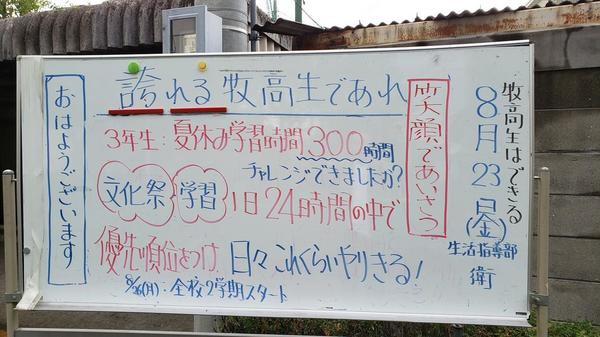 牧高生はできる
8月23日(金)
生活指導部
衛
笑顔であいさつ
誇れる牧高生であれ
3年生：夏休み学習時間300時間
チャレンジできましたか?
文化祭 学習 1日24時間の中で
優先順位をつけ、日々これくらいやりきる!
8/26(月)：全校2学期スタート
おはようございます